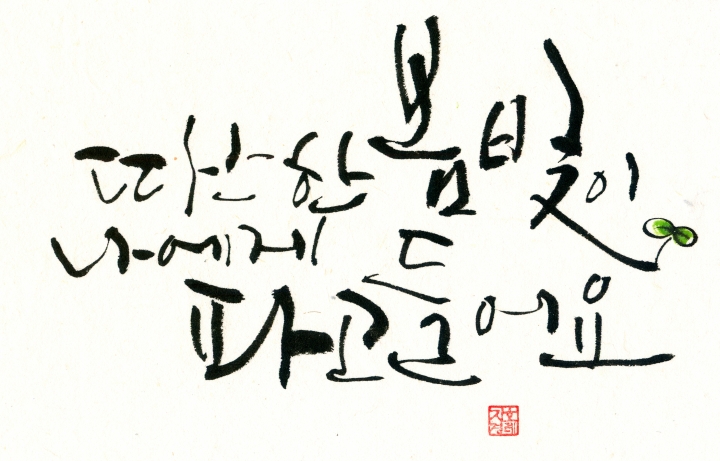 따스한 봄빛이
나에게
파고들어요